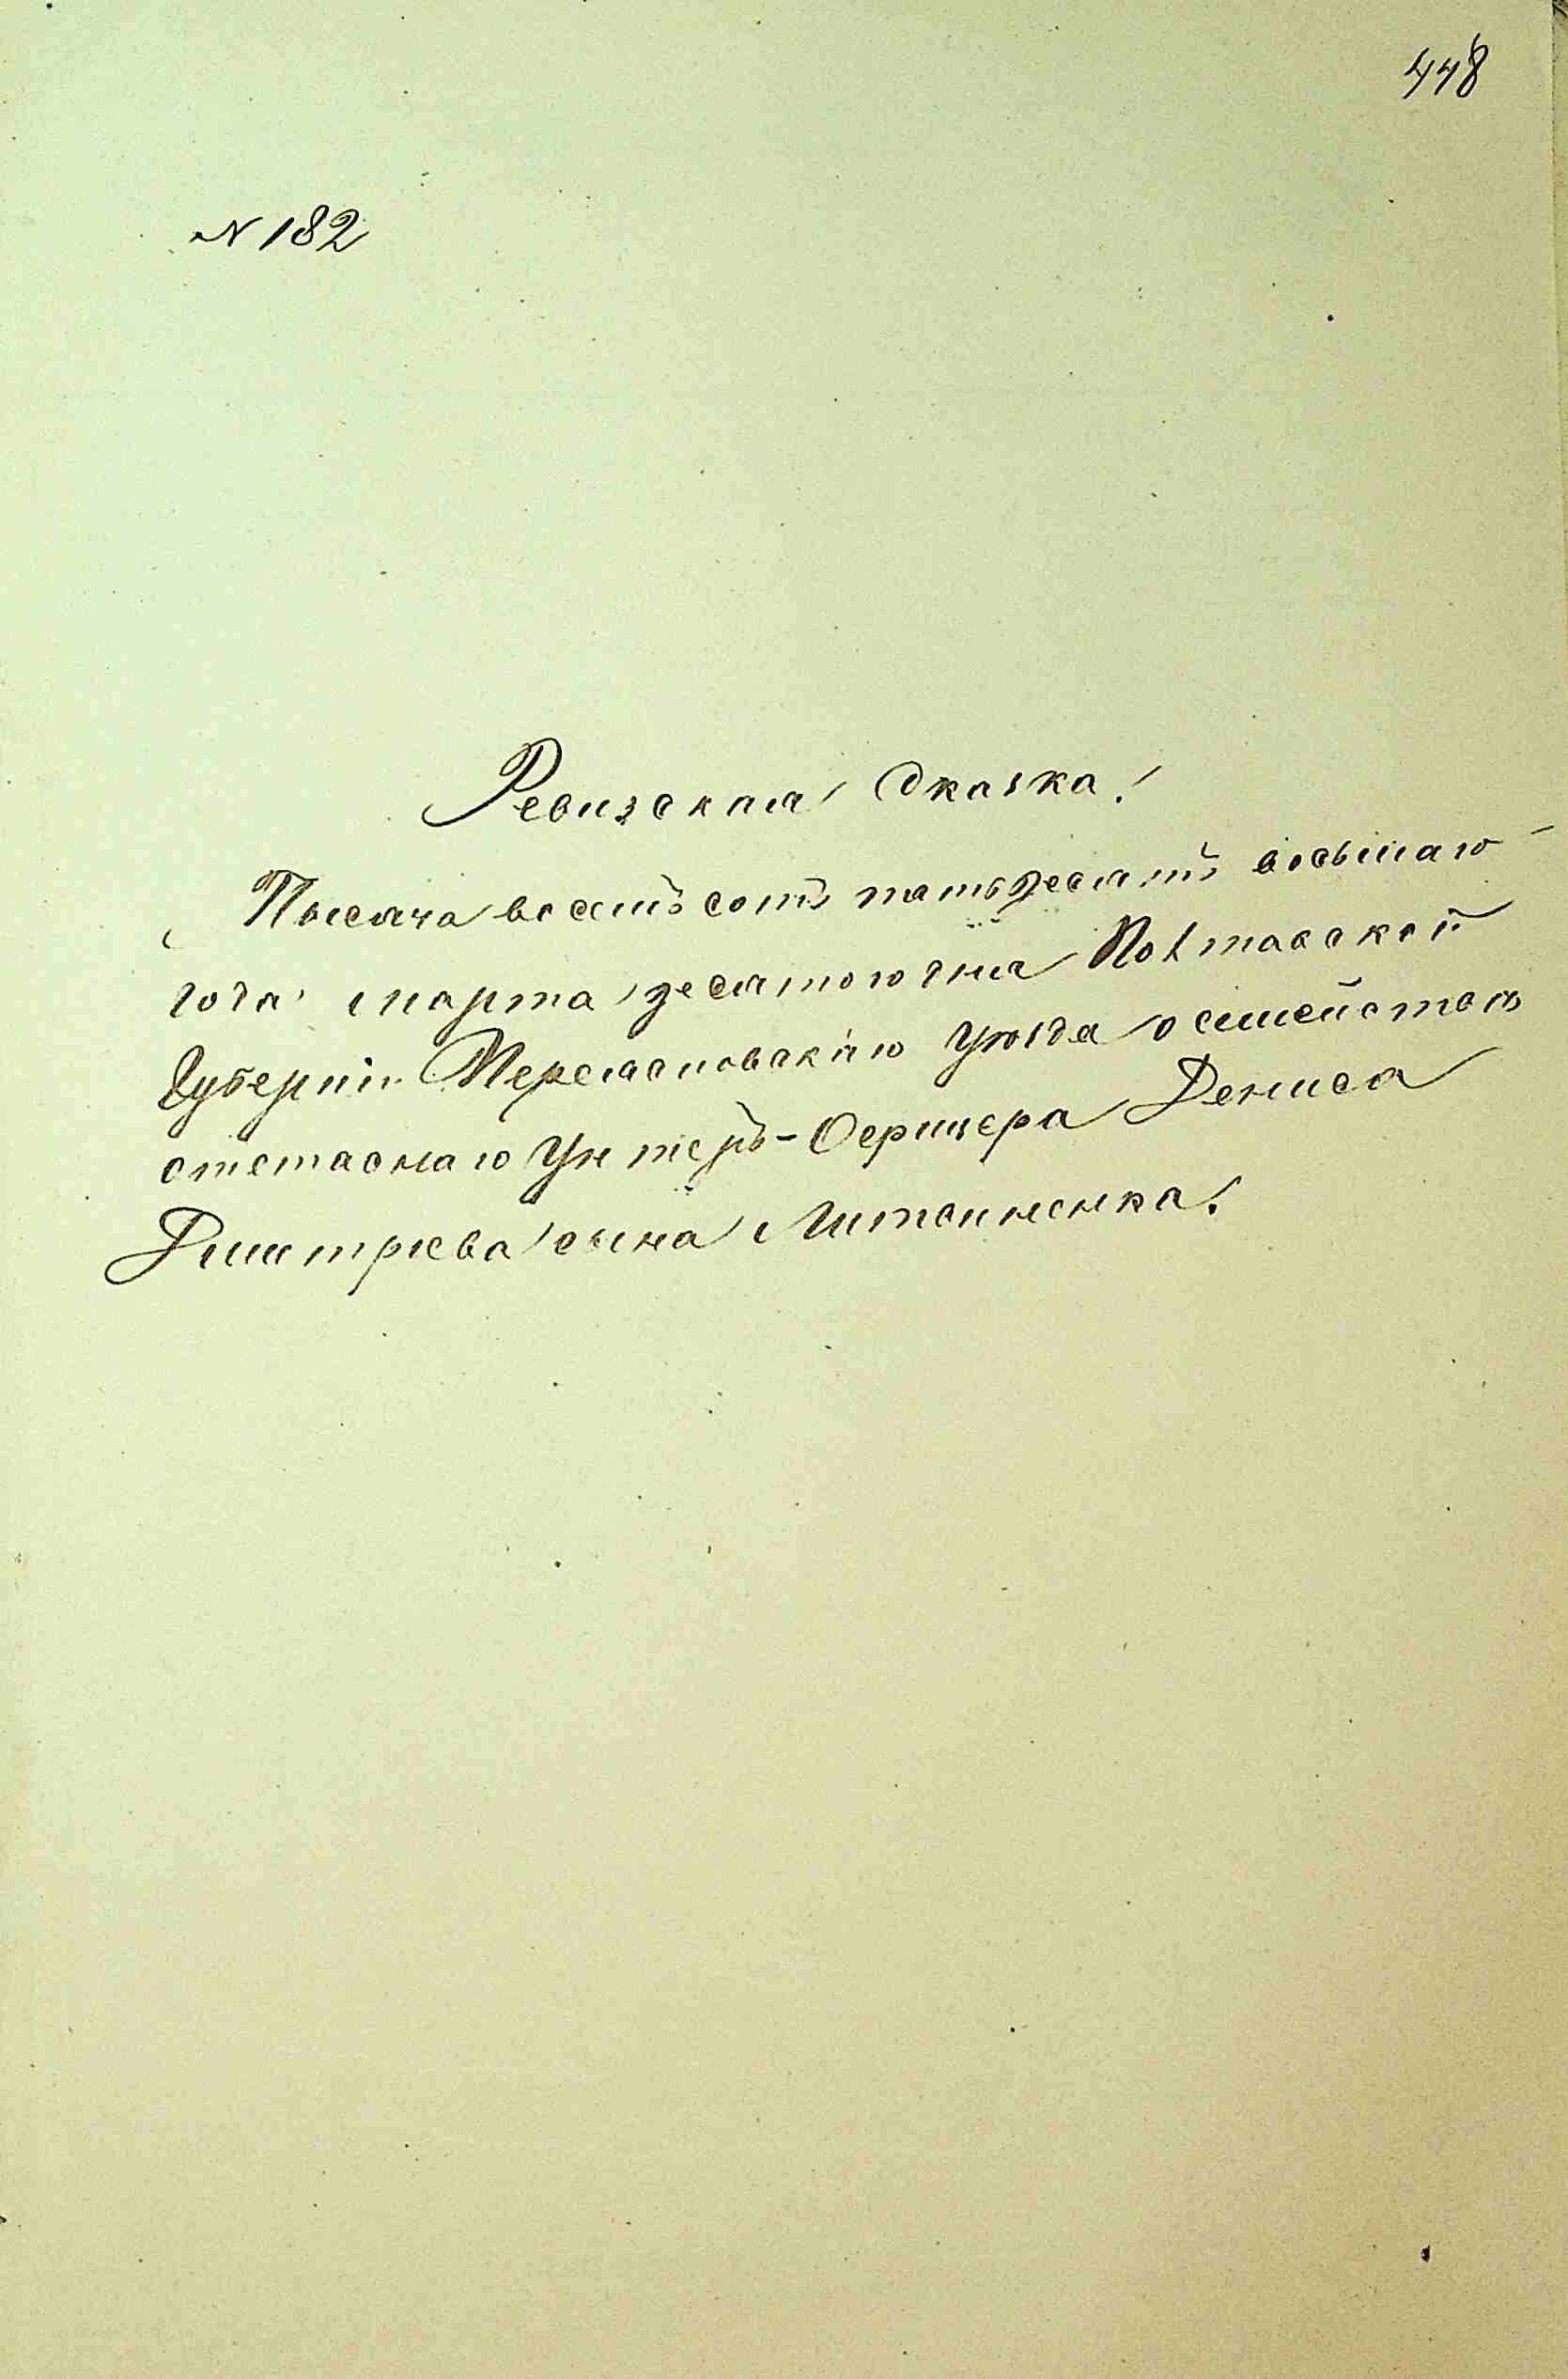 448
№ 182
Ревизская Сказка.
Тысяча восемъ сотъ пятьдесятъ восьмаго
года марта десятого дня Полтавской
Губерніи Переяславскаго уѣзда о семействѣ
отставнаго Унтеръ-Оерицера Дениса
Дмитриева сына Литвиненка.